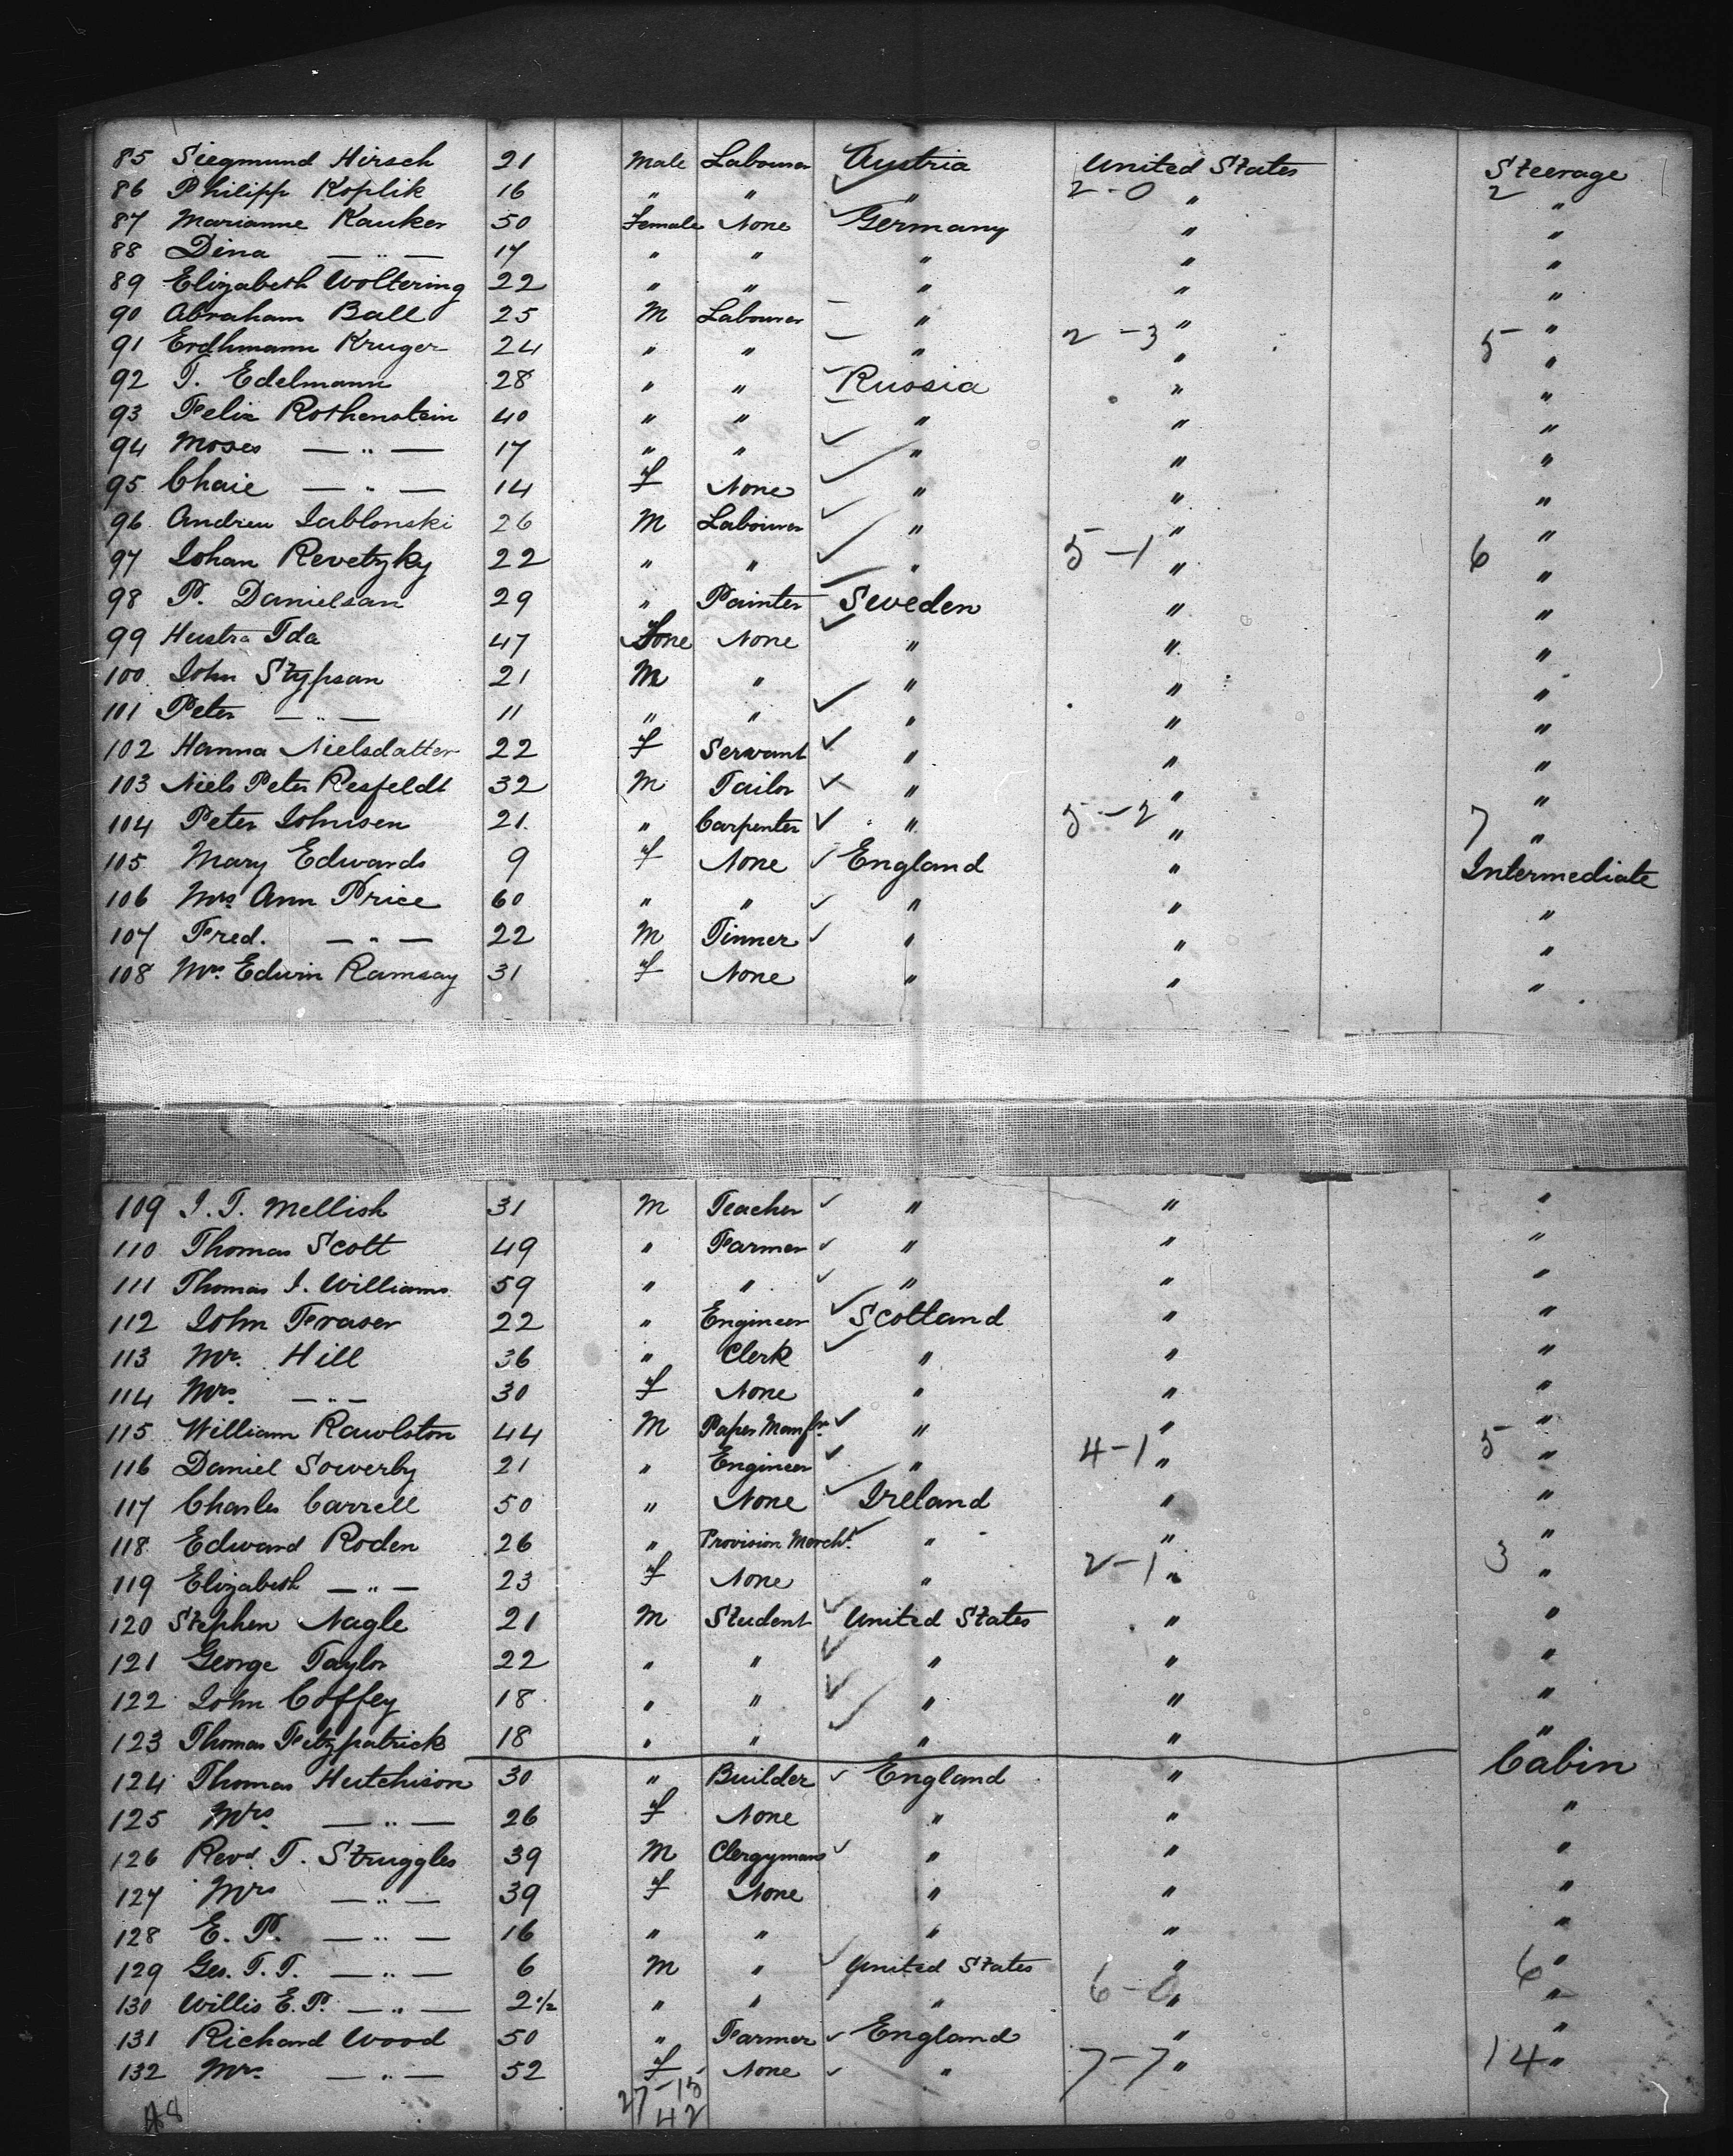 85 Siegmund Hirsch 21 Male Labourer Austria United States Steerage
86 Philipp Koplik 16 " " " 2-0 " 2 "
87 Marianne Kauker 50 Female None Germany " "
88 Dina —"— 17 " " " " "
89 Elizabeth Woltering 22 " " " " "
90 Abraham Ball 25 M Labourer " " "
91 Erdhmann Kruger 24 " " " 2-3 " 5 "
92 T. Edelmann 28 " " Russia " "
93 Felix Rothenstein 40 " " " " "
94 Moses —"— 17 " " " " "
95 Chaie —"— 14 f None " " "
96 Andrew Jablonski 26 M Labourer " " "
97 Johan Revetzky 22 " " " 5-1 " 6 "
98 P. Danielsan 29 " Painter Sweden " "
99 Hustra Ida 47 None " " "
100 John Stypsan 21 M " " " "
101 Peter —"— 11 " " " " "
102 Hanna Nielsdatter 22 f Servant " " "
103 Niels Peter Resfeldt 32 M Tailor " " "
104 Peter Johnsen 21 " Carpenter " 5-2 " 7 "
105 Mary Edwards 9 f None England " Intermediate
106 Mrs Ann Price 60 " " " " "
107 Fred. —"— 22 M Tinner " " "
108 Mrs Edwin Ramsay 31 f None " " "
109 J. T. Mellish 31 M Teacher " " "
110 Thomas Scott 49 " Farmer " " "
111 Thomas J. Williams 59 " " " " "
112 John Fraser 22 " Engineer Scotland " "
113 Mr. Hill 36 " Clerk " " "
114 Mrs. —"— 30 f None " " "
115 William Rawlston 44 M Paper Manfr. " " "
116 Daniel Sowerby 21 " Engineer " 4-1 " 5 "
117 Charles Carrell 50 " None Ireland " "
118 Edward Roden 26 " Provision Mercht. " " "
119 Elizabeth —"— 23 f None " 2-1 " 3 "
120 Stephen Nagle 21 M Student United States " "
121 George Taylor 22 " " " " "
122 John Coffey 18 " " " " "
123 Thomas Fitzpatrick 18 " " " " "
124 Thomas Hutchison 30 " Builder England " Cabin
125 Mrs. —"— 26 f None " " "
126 Revd. T. Struggles 39 M Clergyman " " "
127 Mrs —"— 39 f None " " "
128 E. P. —"— 16 " " " " "
129 Geo. T. T. —"— 6 M " United States " 6 "
130 Willis E. P. —"— 2 1/2 " " " 6-0 " "
131 Richard Wood 50 " Farmer England " "
132 Mrs. —"— 52 f None " 7-7 " 14 "
27-15
42